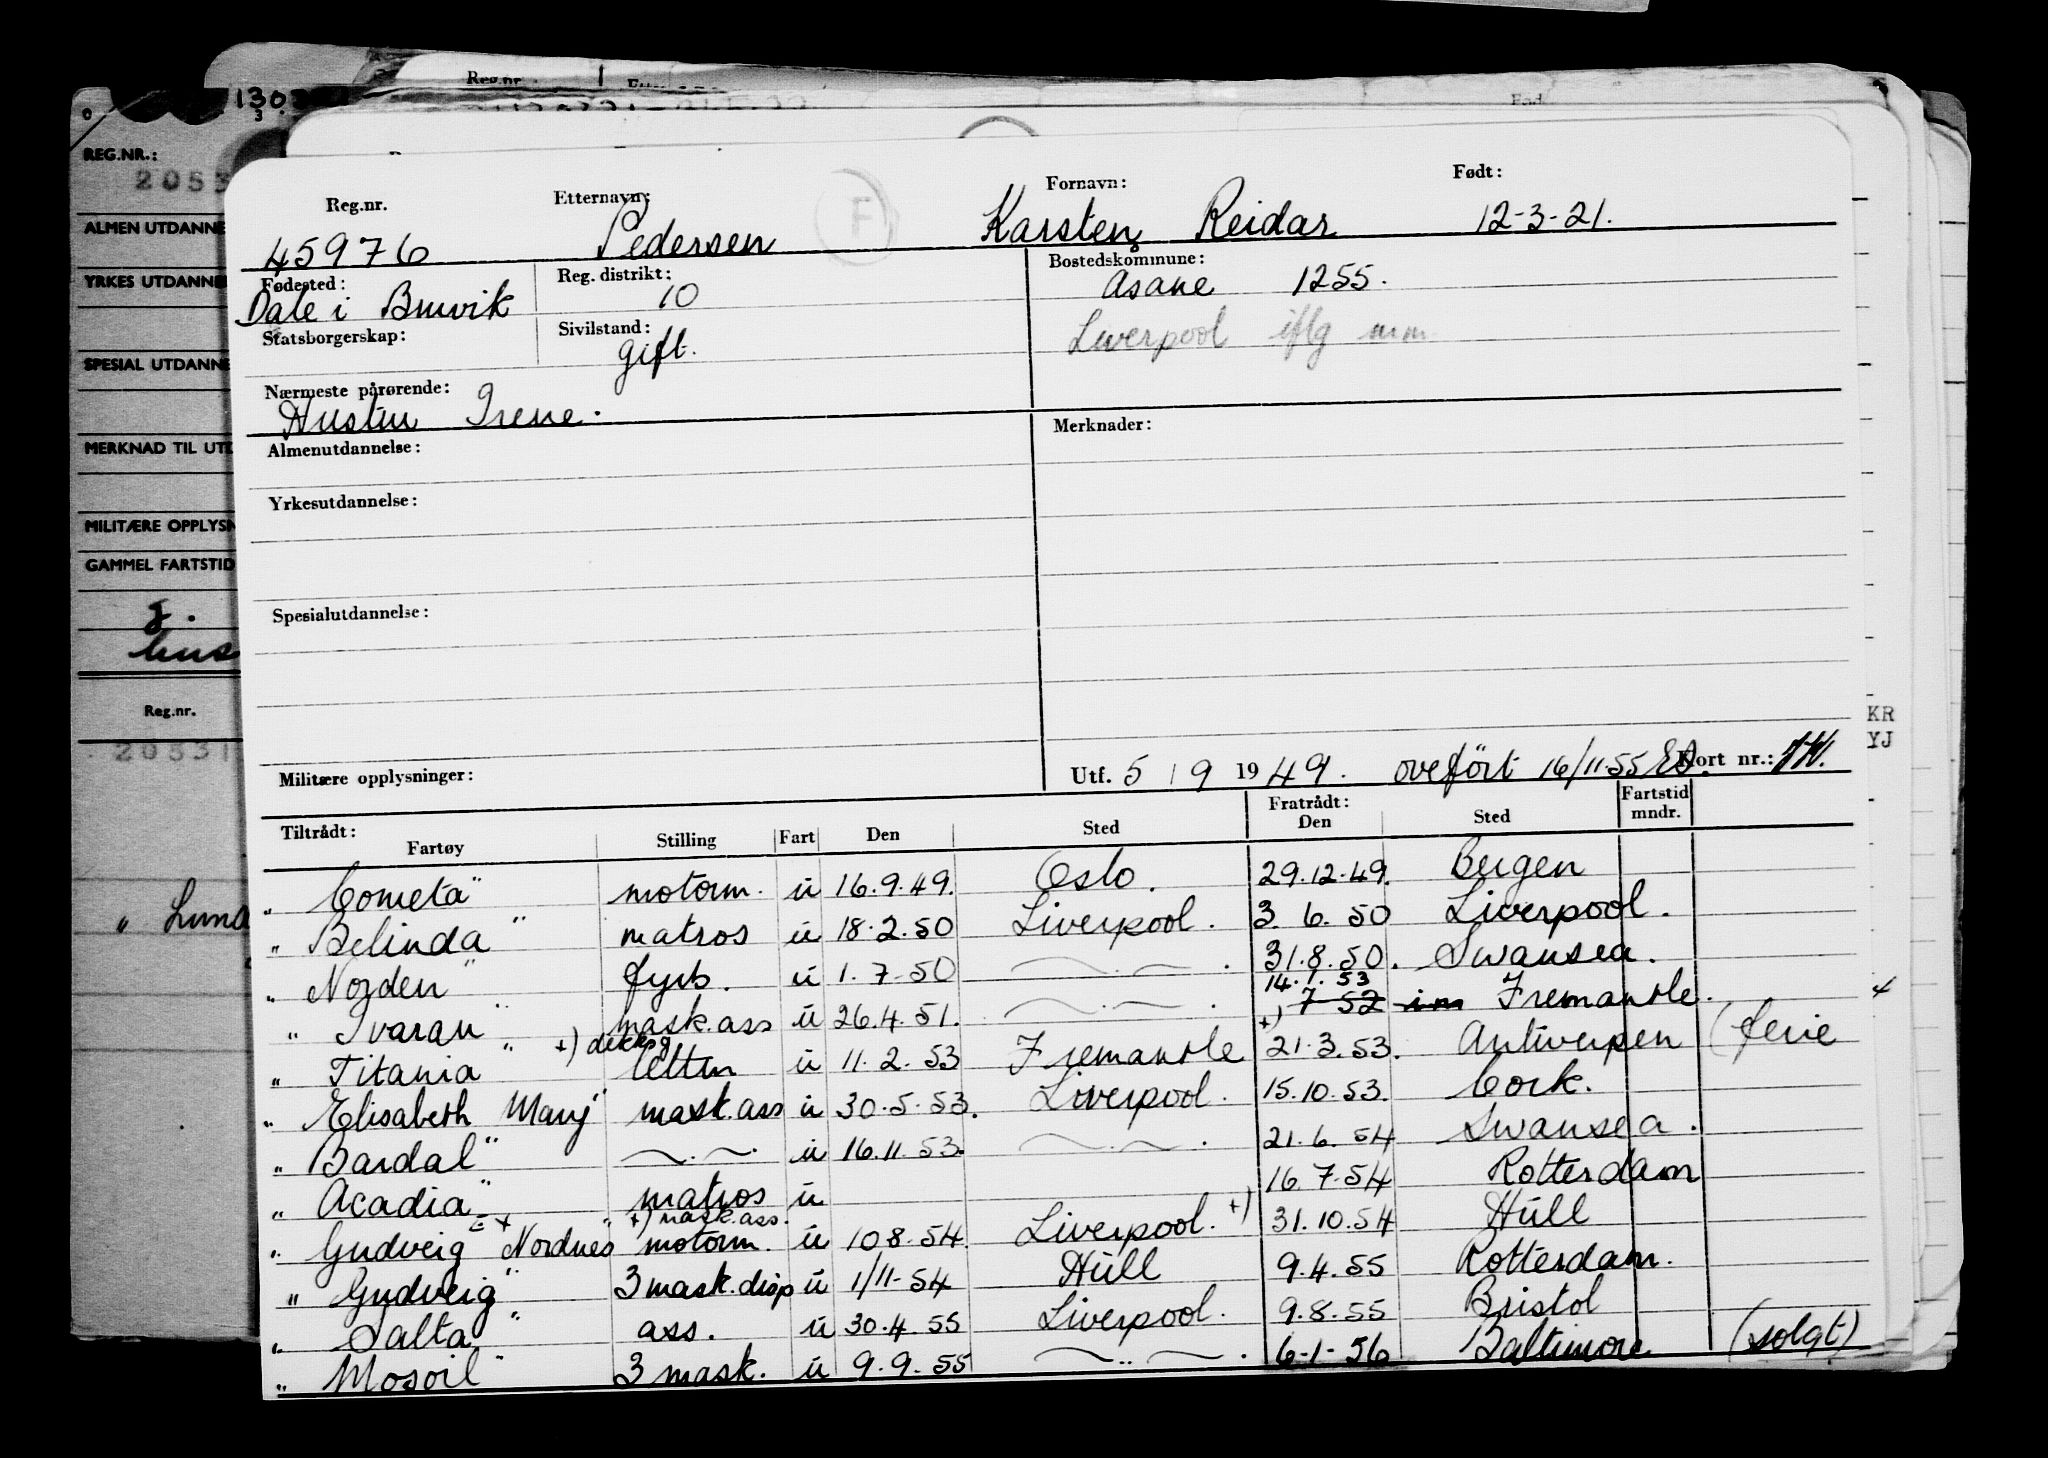 1303
REG.NR.:
2053
ALMEN UTDANNE
YRKES UTDANNE
SPESIAL UTDANNE
MERKNAD TIL UTD
MILITÆRE OPPLYSN
GAMMEL FARTSTID
g.
hus
Reg.nr.
20531
" Luna
Reg.nr.
KR
YJ
Reg.nr. Etternavn: F Fornavn: Født:
45976 Pedersen Karsten Reidar 12-3-21.
Fødested: Reg. distrikt: Bostedskommune:
Dale i Bruvik 10 Åsane 1255.
Statsborgerskap: Sivilstand: Liverpool iflg mm.
gift.
Nærmeste pårørende:
Hustru Irene.
Almenutdannelse: Merknader:
Yrkesutdannelse:
Spesialutdannelse:
Militære opplysninger: Utf. 5 / 9 1949. overført 16/11-55 Kort nr.:
Tiltrådt: Fratrådt: Fartstid
Fartøy Stilling Fart Den Sted Den Sted mndr.
" Cometa" motorm. u 16.9.49. Oslo. 29.12.49. Bergen
" Belinda" matros u 18.2.50 Liverpool. 3.6.50 Liverpool.
" Norden" fyrb. u 1.7.50 —.—. 31.8.50. Swansea.
14.1.53
" Ivaran" mask.ass u 26.4.51. —.—. 7-52 im Fremantle.
+) dekksg +)
" Titania" lettm u 11.2.53 Fremantle 21.3.53. Antwerpen (ferie
" Elisabeth Mary" mask.ass u 30.5.53. Liverpool. 15.10.53. Cork.
" Bardal" —.—. u 16.11.53. —.—. 21.6.54 Swansea.
" Acadia" matros u 16.7.54 Rotterdam
+) mask.ass.
" Gudveig" + Nordnes" motorm. u 10.8.54. Liverpool. +) 31.10.54 Hull
" Gudveig" 3 mask.disp u 1/11-54 Hull 9.4.55 Rotterdam.
" Salta" ass. u 30.4.55 Liverpool. 9.8.55 Bristol
" Mosoil" 3 mask. u 9.9.55 —..—. 6-1-56 Baltimore (solgt)